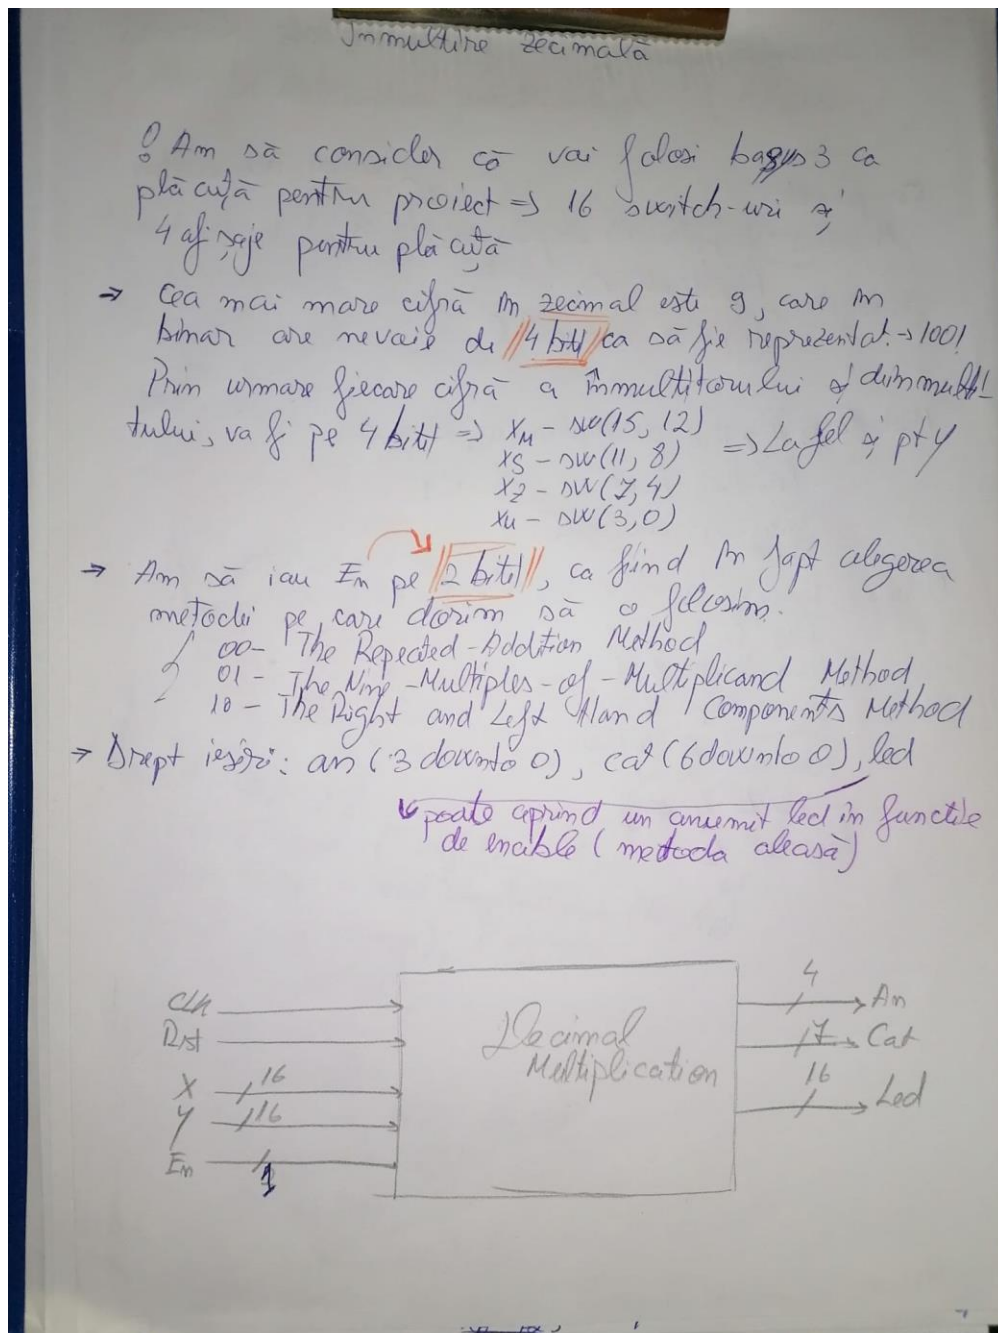 Inmultire zecimală
! Am să consider că vai folosi basys3 ca
plăcuță pentru proiect => 16 switch-uri și
4 afișaje pentru plăcuță
→ Cea mai mare cifră în zecimal este 9, care în
binar are nevoie de 4 biți ca să fie reprezentat. → 1001
Prin urmare fiecare cifră a înmultitorului și deinmulti-
tului, va fi pe 4 biți => XM - sw(15, 12)
XS - sw(11, 8) => La fel și pt Y
XZ - sw(7, 4)
XU - sw(3, 0)
→ Am să iau En pe 2 biți, ca fiind în fapt alegerea
metodei pe care dorim să o folosim.
00 - The Repeated-Addition Method
01 - The Nine-Multiples-of-Multiplicand Method
10 - The Right and Left Hand Components Method
→ Drept ieșiri: an (3 downto 0), cat (6 downto 0), led
poate aprind un anumit led in functie
de enable (metoda aleasă)
Clk
Rst
X 16
Y 16
En 1
Decimal
Multiplication
4 An
7 Cat
16 Led